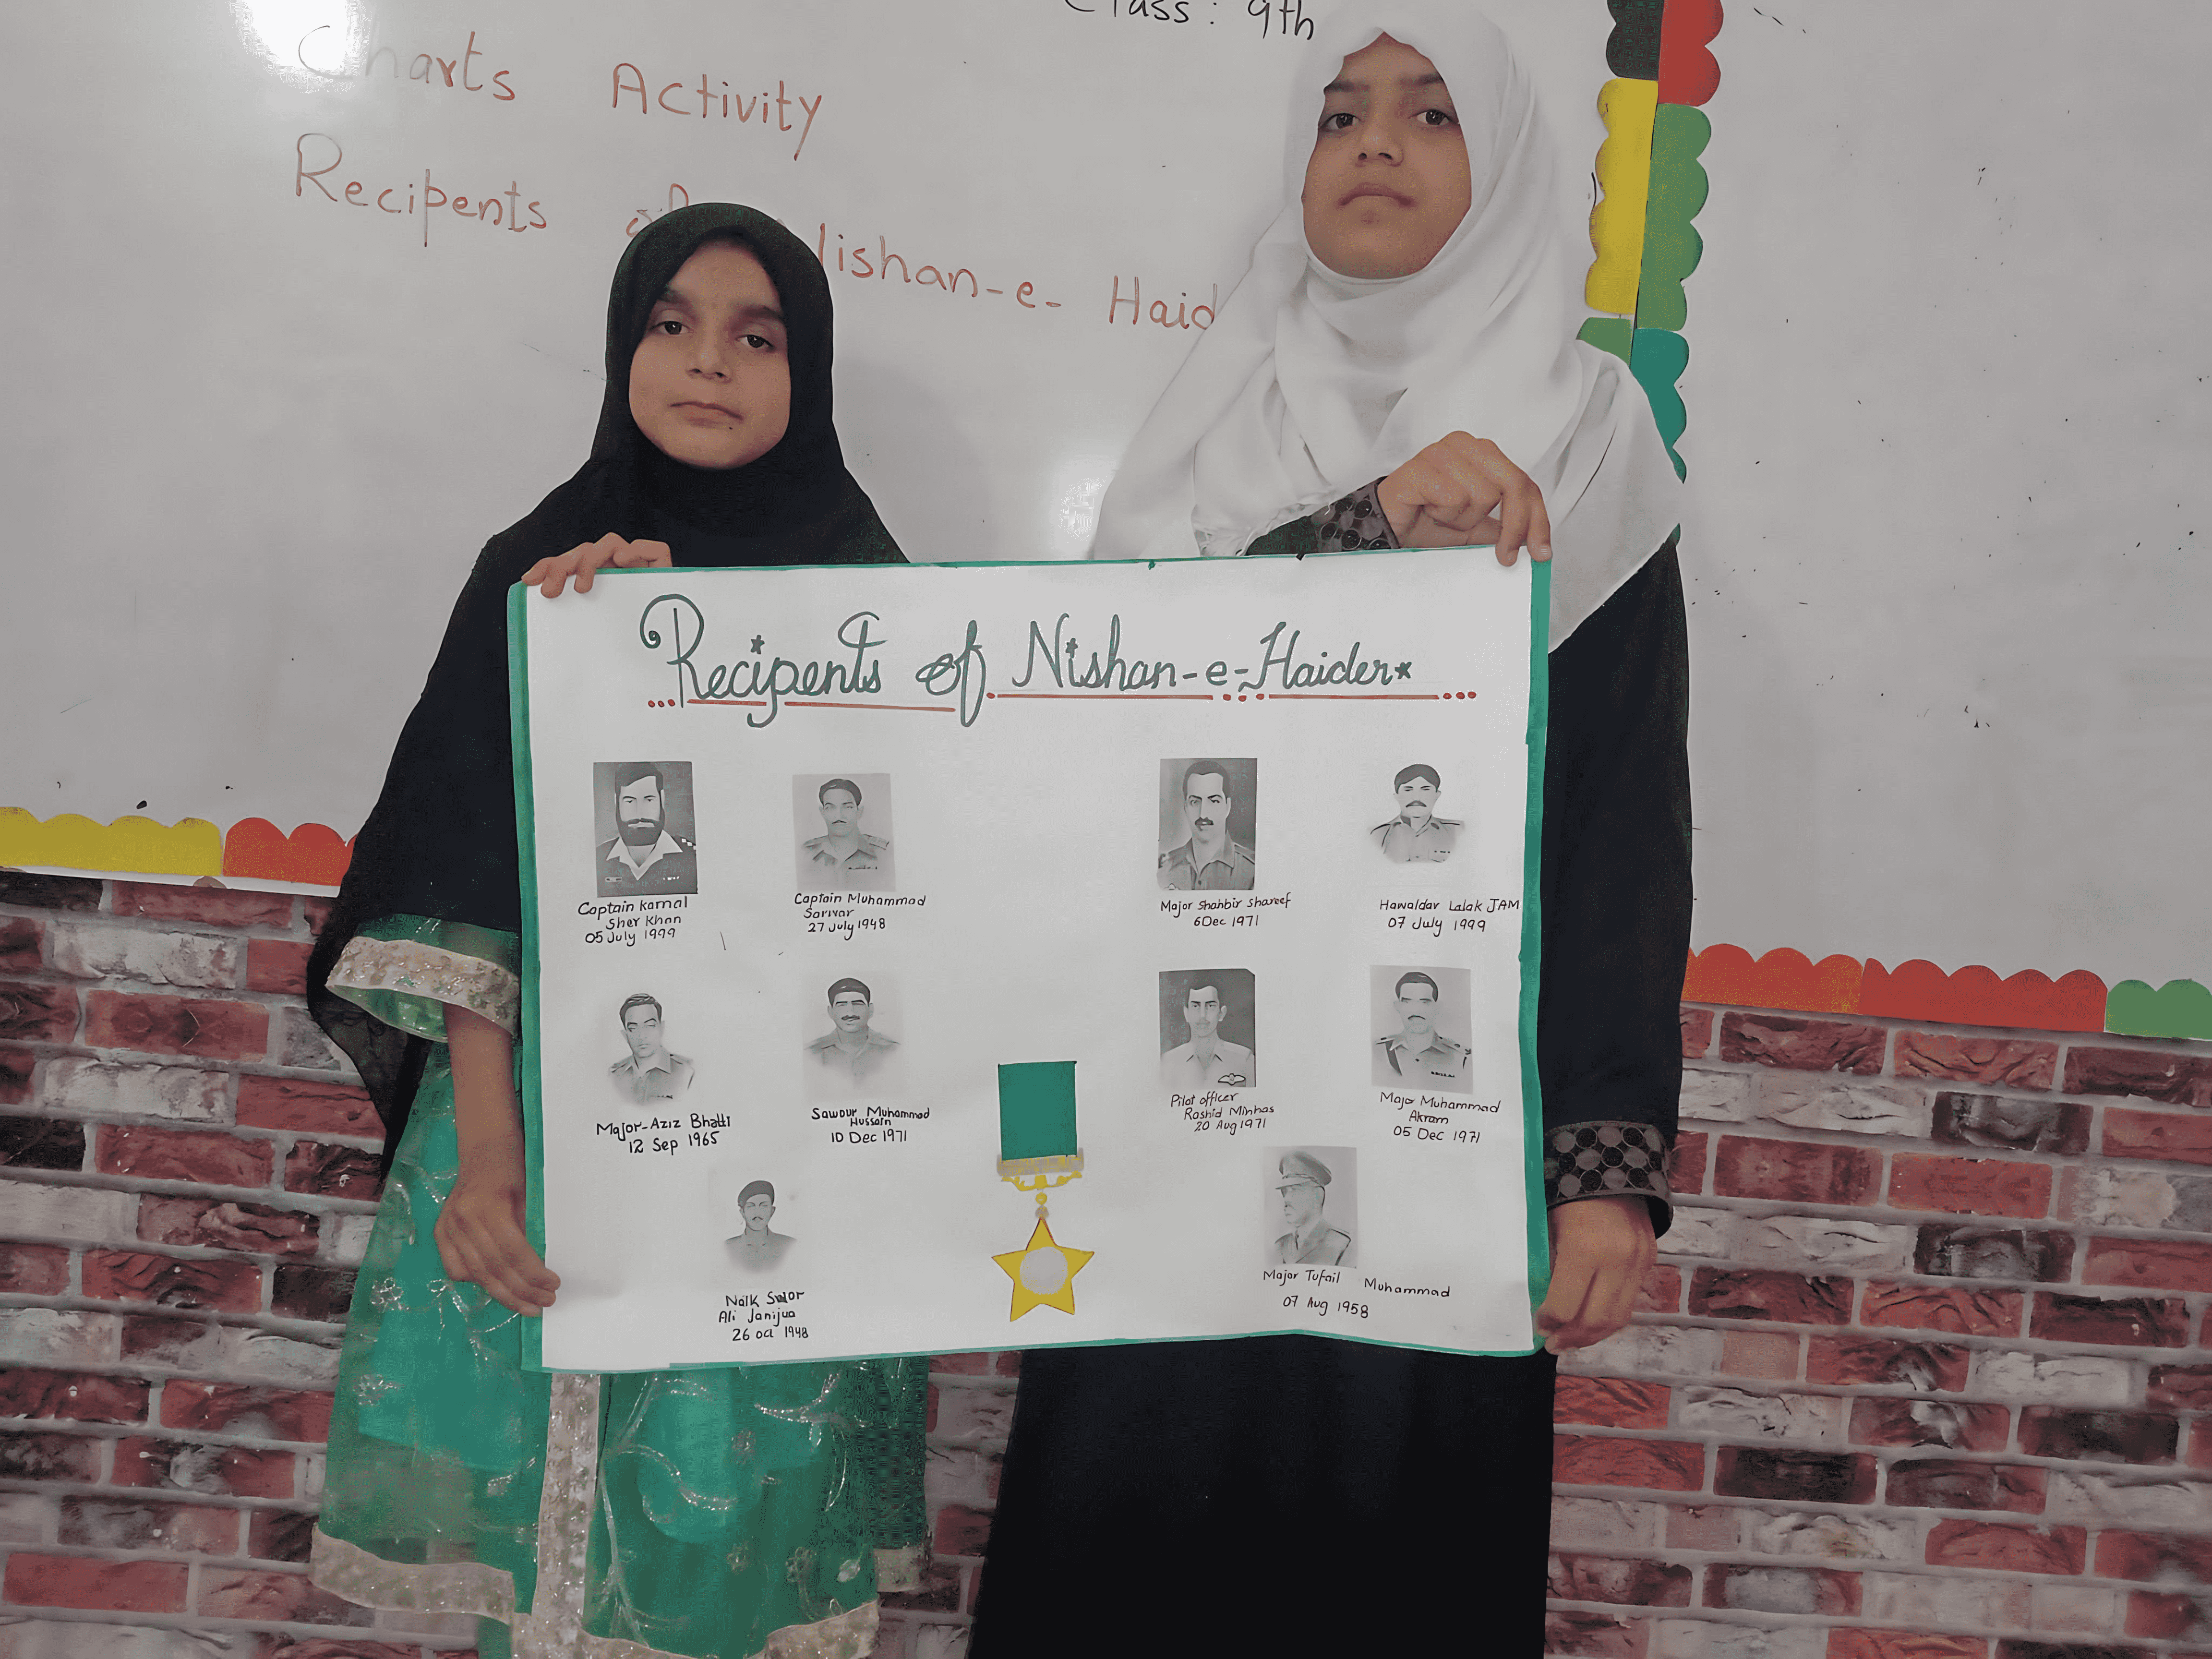 Class: 9th
Charts Activity
Recipents of Nishan-e- Haid
Recipents of Nishan-e-Haider
Captain Kamal
Sher Khan
05 July 1999
Captain Muhammad
Sarwar
27 July 1948
Major Shabbir Shareef
6 Dec 1971
Hawaldar Lalak JAM
07 July 1999
Major-Aziz Bhatti
12 Sep 1965
Sawour Muhammad
Hussain
10 Dec 1971
Pilot officer
Rashid Minhas
20 Aug 1971
Major Muhammad
Akram
05 Dec 1971
Naik
Ali Janijua
26 oct 1948
Major Tufail Muhammad
07 Aug 1958